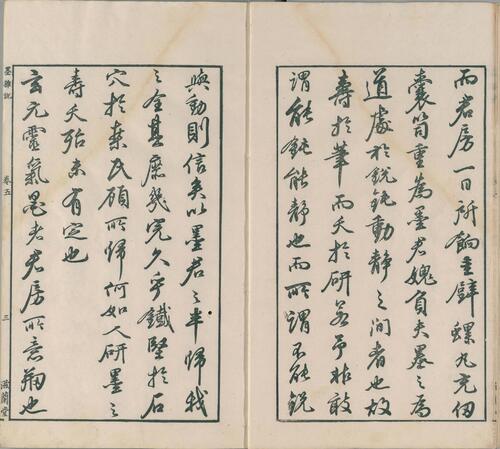 而君房一日所餉圭璧螺丸充牣
囊笥重為墨君媿負夫墨之為
道處於銳鈍動靜之間者也故
壽於筆而夭於研若予非敢
謂能鈍能靜也而所謂不能銳
與動則信矣以墨君之半歸我
之全其庶幾完久乎鐵堅於石
穴於桑氏顧所歸何如人研墨之
壽夭殆未有定也
玄元靈氣墨者君房所意剏也
墨雜說 卷五 三 滋蘭堂